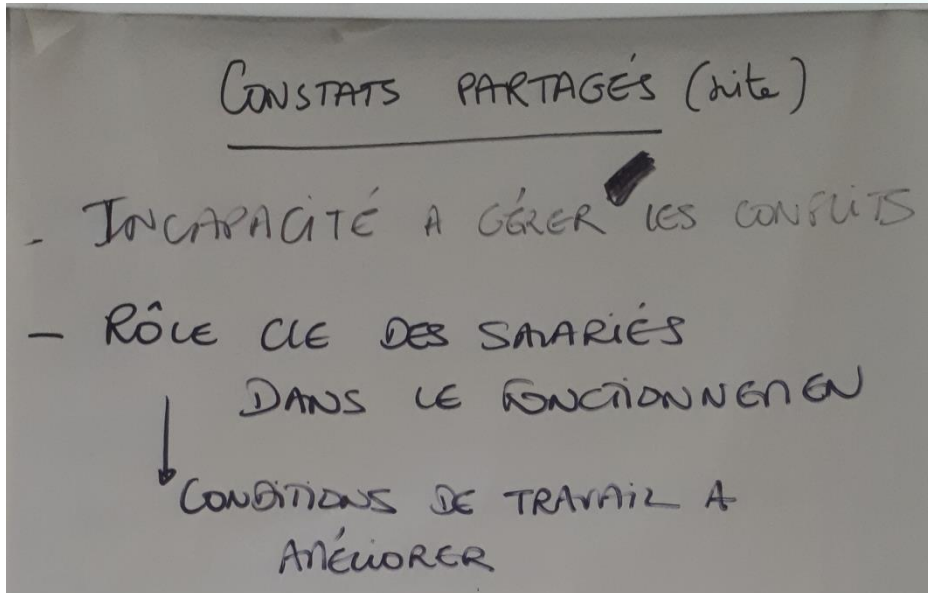 CONSTATS PARTAGÉS (suite)
- INCAPACITÉ A GÉRER LES CONFLITS
- RÔLE CLE DES SALARIÉS
DANS LE FONCTIONNEMEN
CONDITIONS DE TRAVAIL A
AMÉLIORER